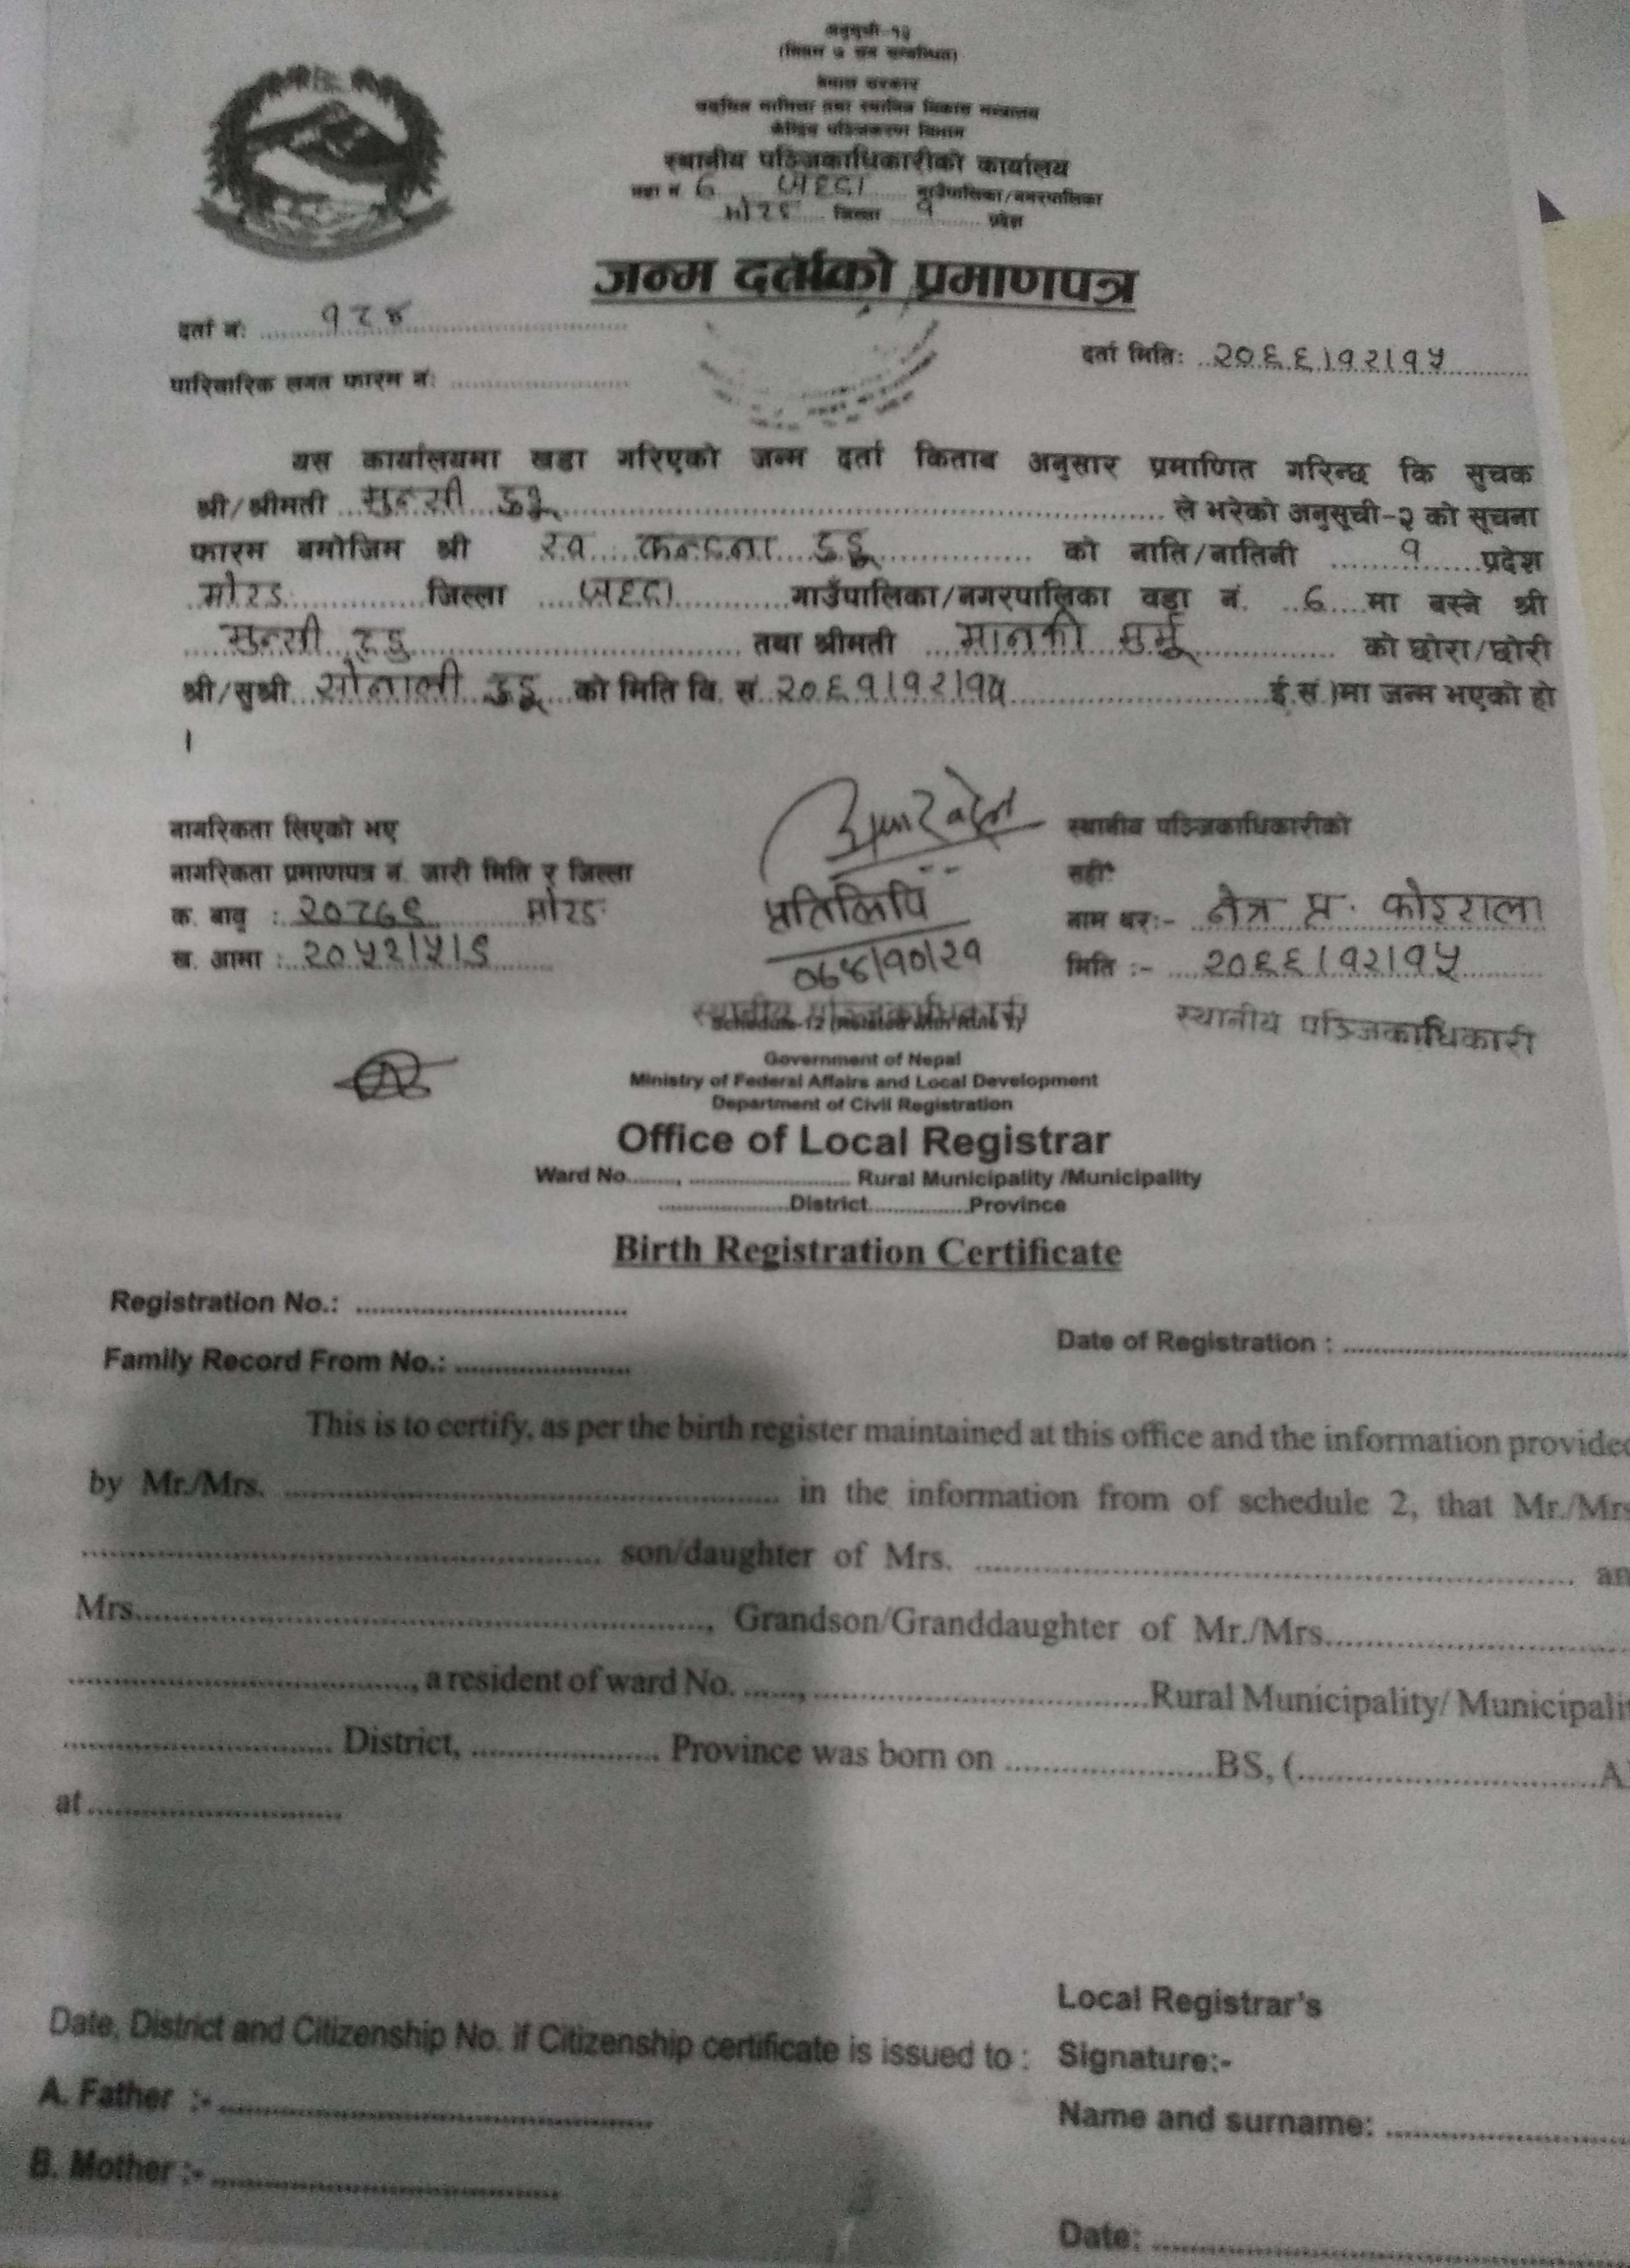 अनुसूची-१२
(नियम ७ सँग सम्बन्धित)
नेपाल सरकार
सङ्घिय मामिला तथा स्थानिय विकास मन्त्रालय
केन्द्रिय पञ्जिकरण विभाग
स्थानीय पञ्जिकाधिकारीको कार्यालय
वडा नं ६ गाउँपालिका/नगरपालिका
मोरङ जिल्ला १ प्रदेश
जन्म दर्ताको प्रमाणपत्र
दर्ता नं: १८४
दर्ता मिति: २०६६।१२।१५
पारिवारिक लगत फारम नं:
यस कार्यालयमा खडा गरिएको जन्म दर्ता किताब अनुसार प्रमाणित गरिन्छ कि सुचक
श्री/श्रीमती मुन्सी टुडू ले भरेको अनुसूची-२ को सूचना
फारम बमोजिम श्री स्व टुडू को नाति/नातिनी १ प्रदेश
मोरङ जिल्ला गाउँपालिका/नगरपालिका वडा नं. ६ मा बस्ने श्री
मुन्सी टुडु तथा श्रीमती मानकी मुर्मू को छोरा/छोरी
श्री/सुश्री सोनाली टुडू को मिति वि. सं २०६१।१२।१५ ई.सं.)मा जन्म भएको हो
।
नागरिकता लिएको भए
स्थानीय पञ्जिकाधिकारीको
नागरिकता प्रमाणपत्र नं. जारी मिति र जिल्ला
सही:
प्रतिलिपि
क. बाबु : २०७६९ मोरङ
नाम थर:- नेत्र प्र. कोइराला
ख. आमा : २०५२।५।९
०७४।१०।२१
मिति :- २०६६।१२।१५
स्थानीय पञ्जिकाधिकारी
स्थानीय पञ्जिकाधिकारी
Schedule-12 (Related with Rule 7)
Government of Nepal
Ministry of Federal Affairs and Local Development
Department of Civil Registration
Office of Local Registrar
Ward No........, ............................ Rural Municipality /Municipality
......................District.................Province
Birth Registration Certificate
Registration No.: ..................................
Date of Registration : ....................................
Family Record From No.: ......................
This is to certify, as per the birth register maintained at this office and the information provided
by Mr./Mrs. .................................................. in the information from of schedule 2, that Mr./Mrs
.................................................... son/daughter of Mrs. ............................................................ an
Mrs.........................................................., Grandson/Granddaughter of Mr./Mrs..............................
..................................., a resident of ward No. ......, ..................................Rural Municipality/ Municipalit
........................... District, ................... Province was born on .....................BS, (..............................A
at..........................
Local Registrar's
Date, District and Citizenship No. if Citizenship certificate is issued to :
Signature:-
A. Father :- ..................................................
Name and surname: ..............................
B. Mother :- ........................................
Date: ..................................................